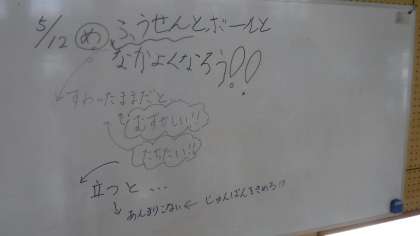 5/12 め ふうせんと、ボールと
なかよくなろう!!
すわったままだと
むずかしい!!
たちたい!!
立つと...
あんまりこない ← じゅんばんをきめろ!?